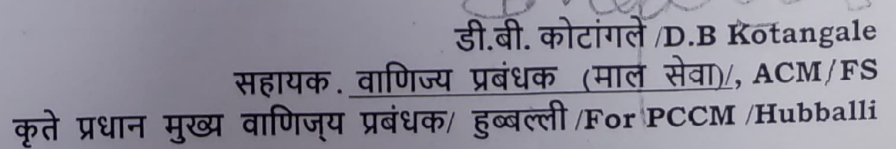 डी.बी. कोटांगले /D.B Kotangale
सहायक. वाणिज्य प्रबंधक (माल सेवा)/, ACM/FS
कृते प्रधान मुख्य वाणिज्य प्रबंधक/ हुब्बल्ली /For PCCM /Hubballi